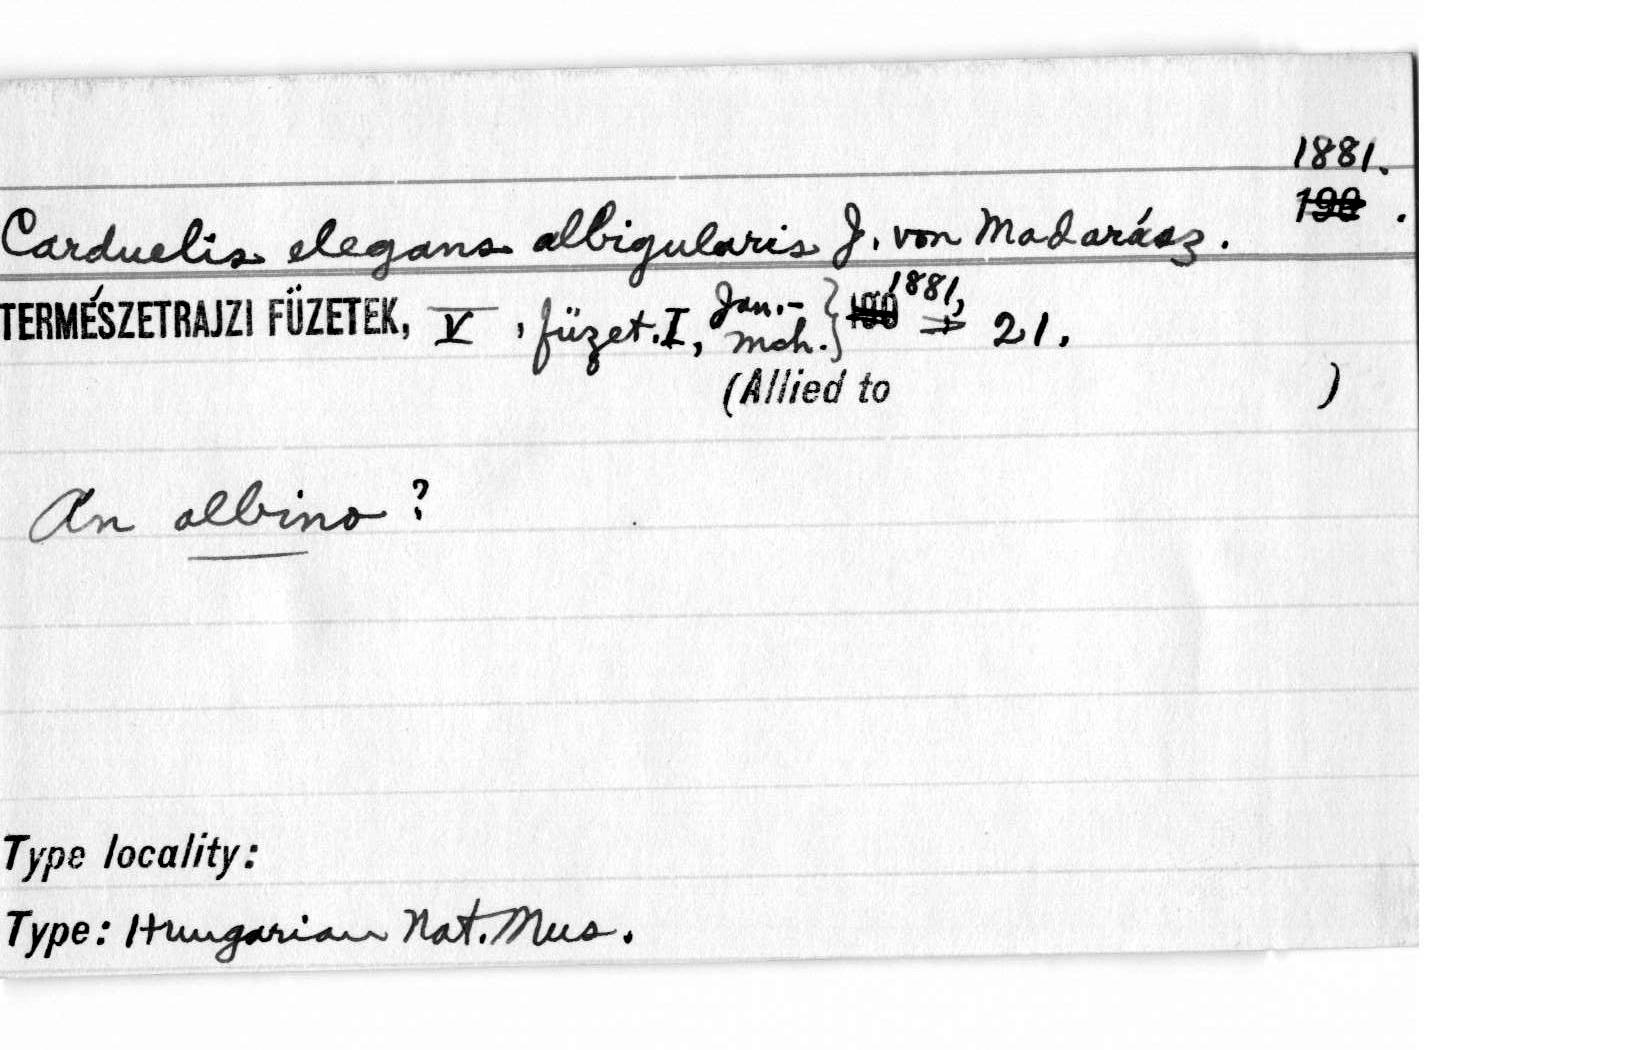 1881.
190.
Carduelis elegans albigularis J. von Madarász.
TERMÉSZETRAJZI FÜZETEK, V, füzet. I, Jan.-Mch. } 190 1881, p 21.
(Allied to )
An albino?
Type locality:
Type: Hungarian Nat. Mus.